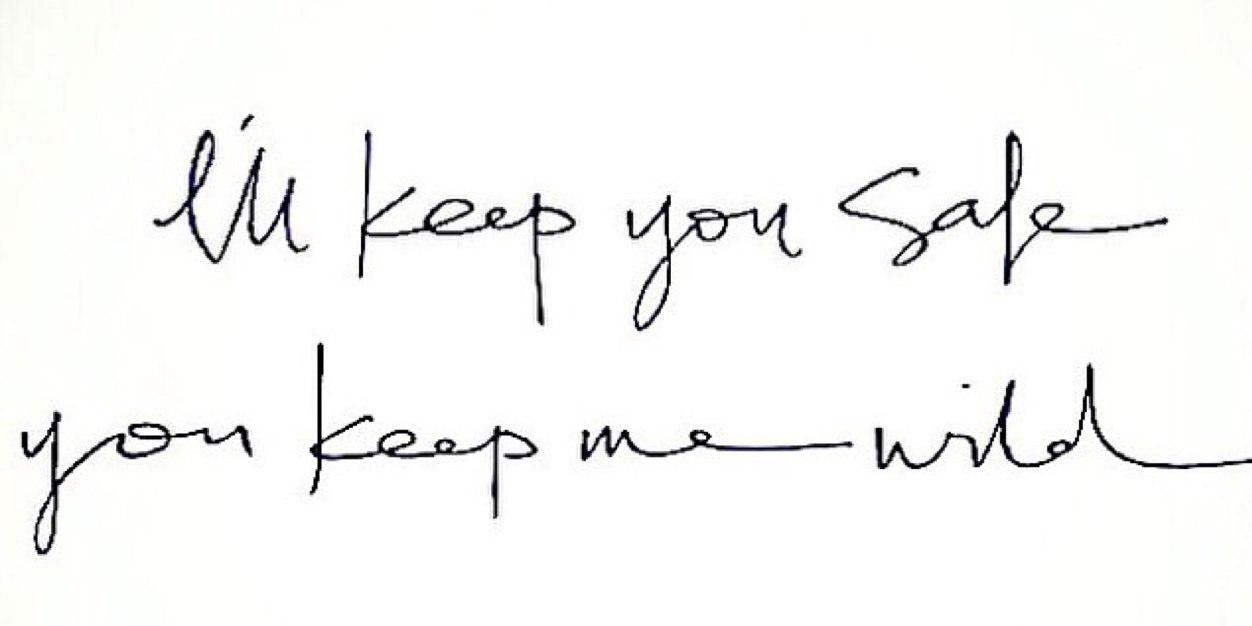 I'll keep you safe
you keep me wild